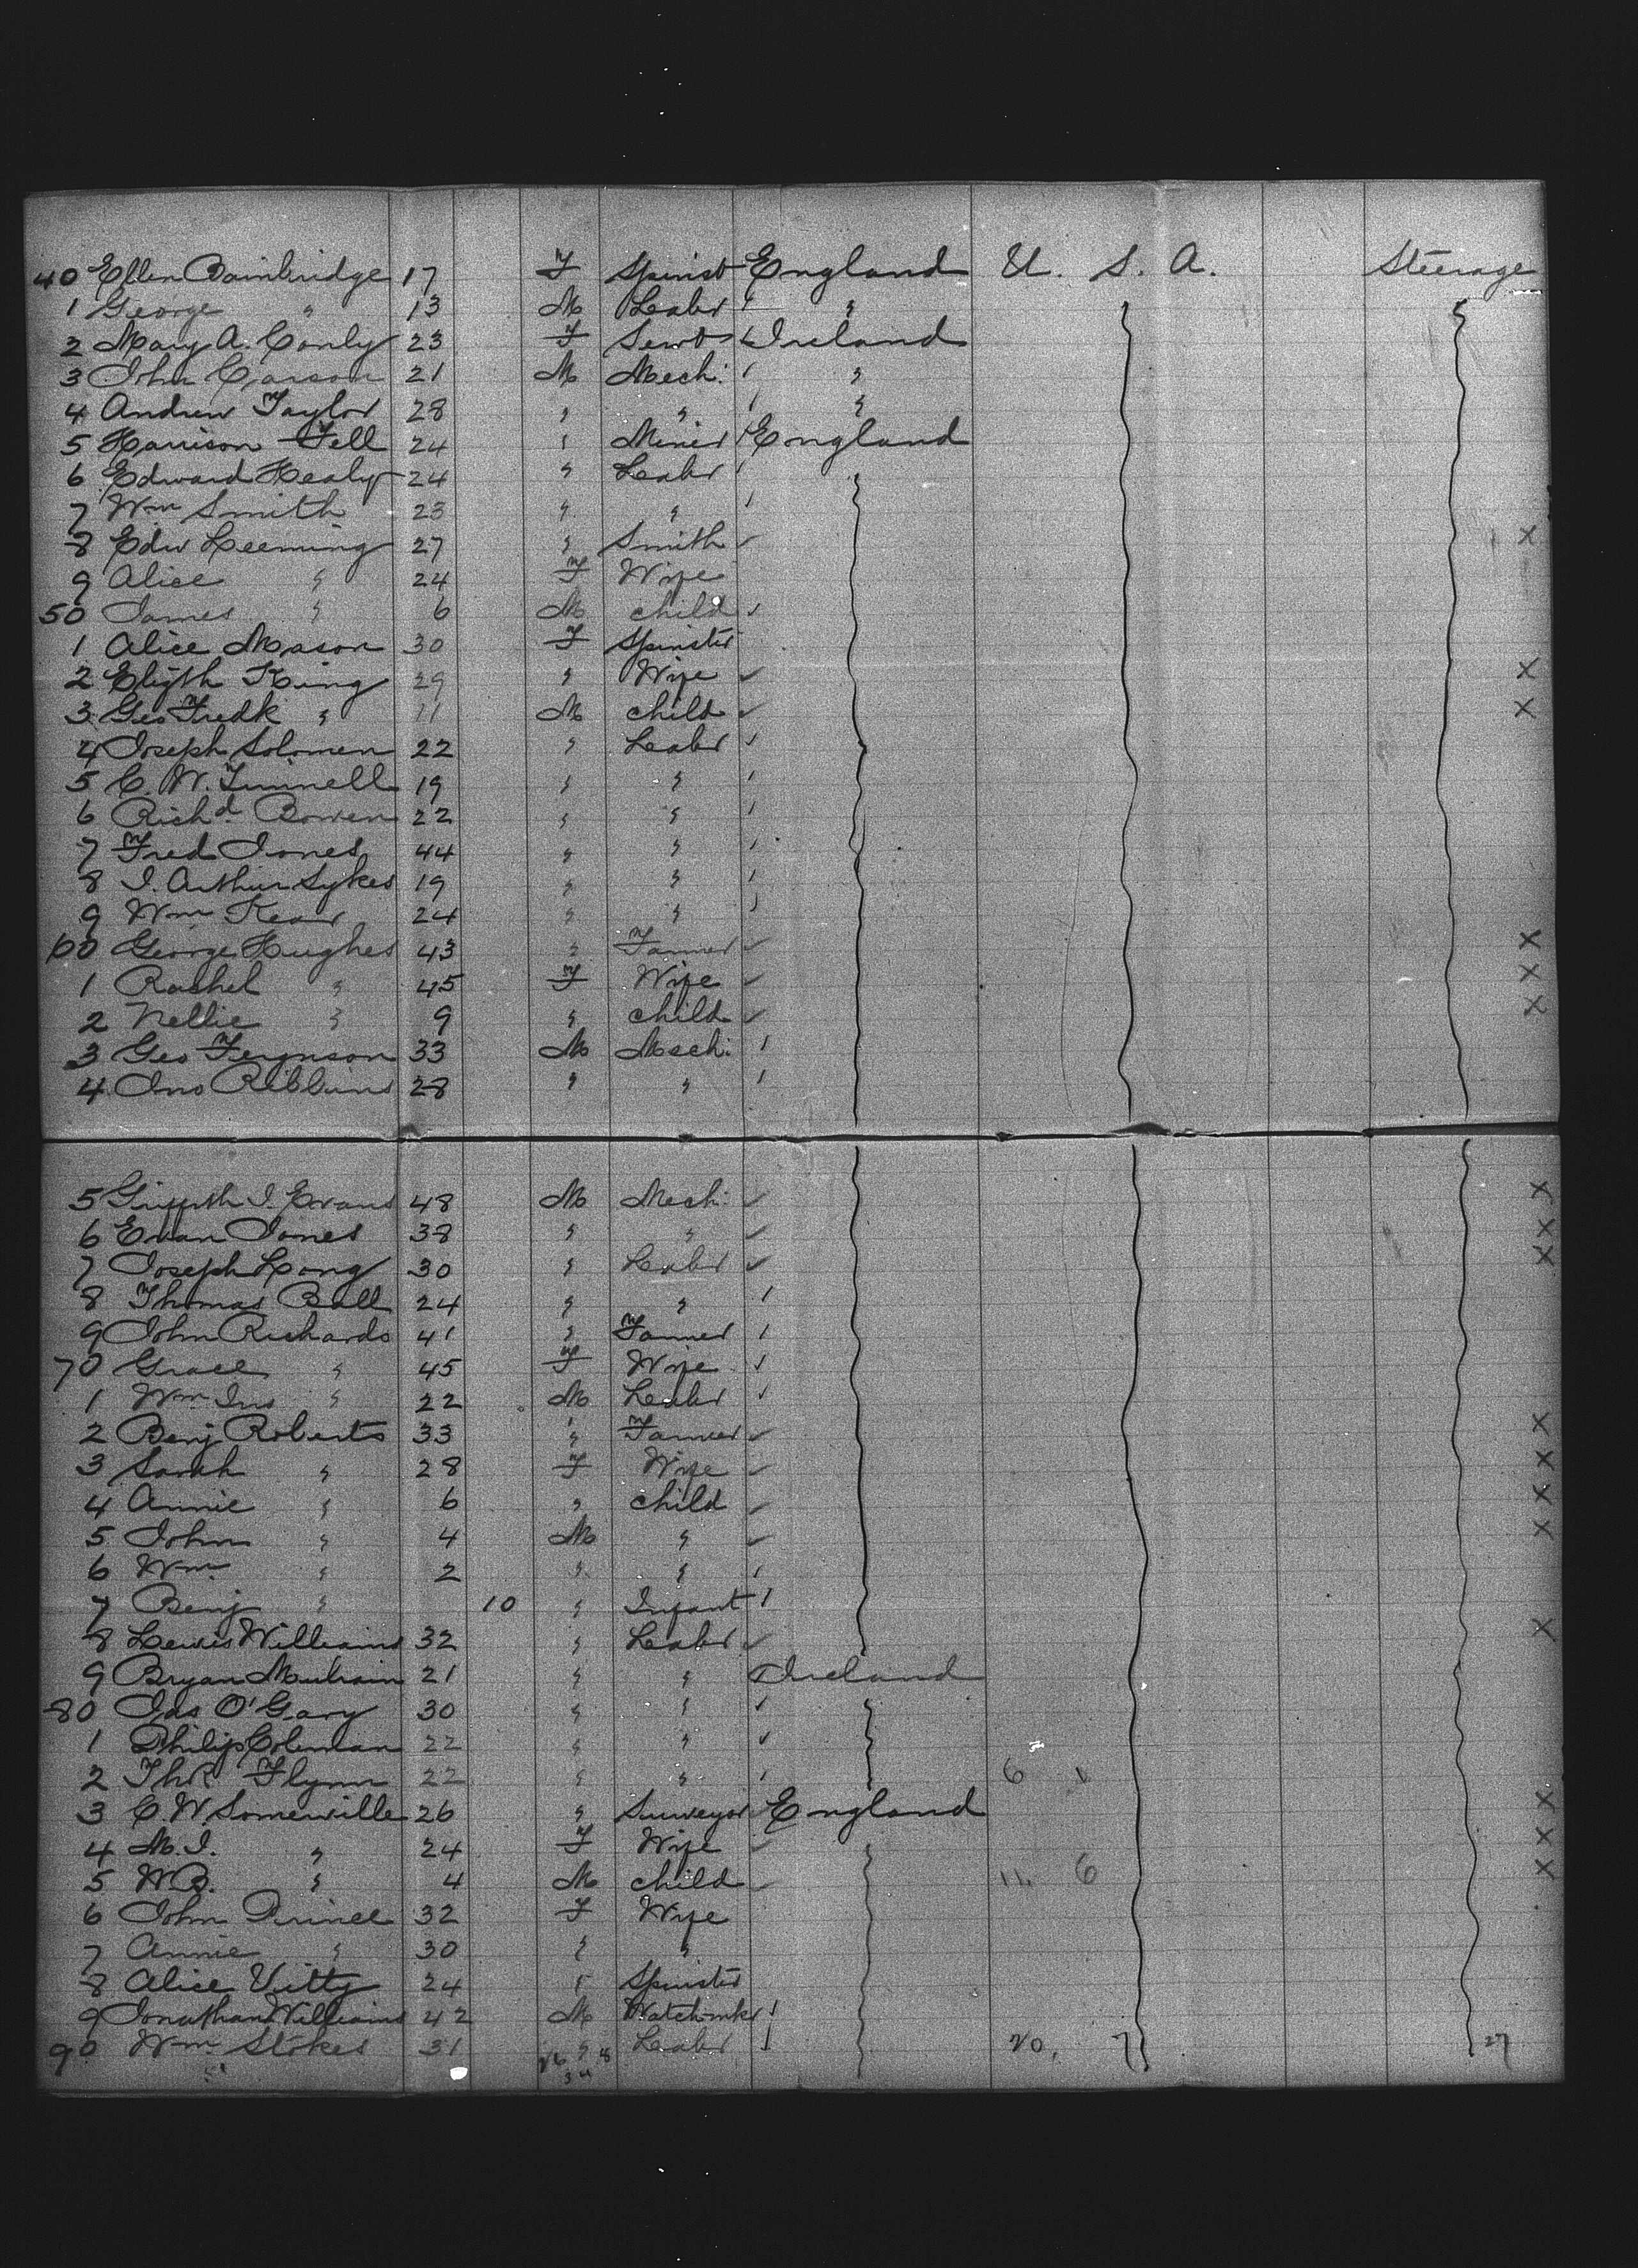 40 Ellen Bainbridge 17 F Spinst England U. S. A. Steerage
1 George " 13 M Labr "
2 Mary A. Conly 23 F Servt Ireland
3 John Carson 21 M Mech. "
4 Andrew Taylor 28 " " "
5 Harrison Fell 24 " Miner England
6 Edward Healy 24 " Labr
7 Wm Smith 23 " "
8 Edw Leeming 27 " Smith
9 Alice " 24 F Wife
50 James " 6 M child
1 Alice Mason 30 F Spinster
2 Elizth King 29 " Wife
3 Geo Fredk " 11 M child
4 Joseph Solomen 22 " Labr
5 C. W. Tunnell 19 " "
6 Richd Bowen 22 " "
7 Fred Jones 44 " "
8 J. Arthur Sykes 19 " "
9 Wm Kear 24 " "
60 George Hughes 43 " Farmer
1 Rachel " 45 F Wife
2 Nellie " 9 " child
3 Geo Ferguson 33 M Mech.
4 Jno Ribbins 28 " "
5 Griffith J. Evans 48 M Mech.
6 Evan Jones 38 " "
7 Joseph Long 30 " Labr
8 Thomas Ball 24 " "
9 John Richards 41 " Farmer
70 Grace " 45 F Wife
1 Wm Jno " 22 M Labr
2 Benj Roberts 33 " Farmer
3 Sarah " 28 F Wife
4 Annie " 6 " child
5 John " 4 M "
6 Wm " 2 " "
7 Benj " 10 " Infant
8 Lewis Williams 32 " Labr
9 Bryan Mulrain 21 " " Ireland
80 Jas O'Gary 30 " "
1 Philip Coleman 22 " "
2 Thos Flynn 22 " " 6 1
3 C. W. Somerville 26 " Surveyor England
4 M. J. " 24 F Wife
5 W B. " 4 M child 11. 6
6 John Prince 32 F Wife
7 Annie " 30 " "
8 Alice Vitty 24 " Spinster
9 Jonathan Williams 42 M Watchmkr
90 Wm Stokes 31 " Labr 20. 7 27